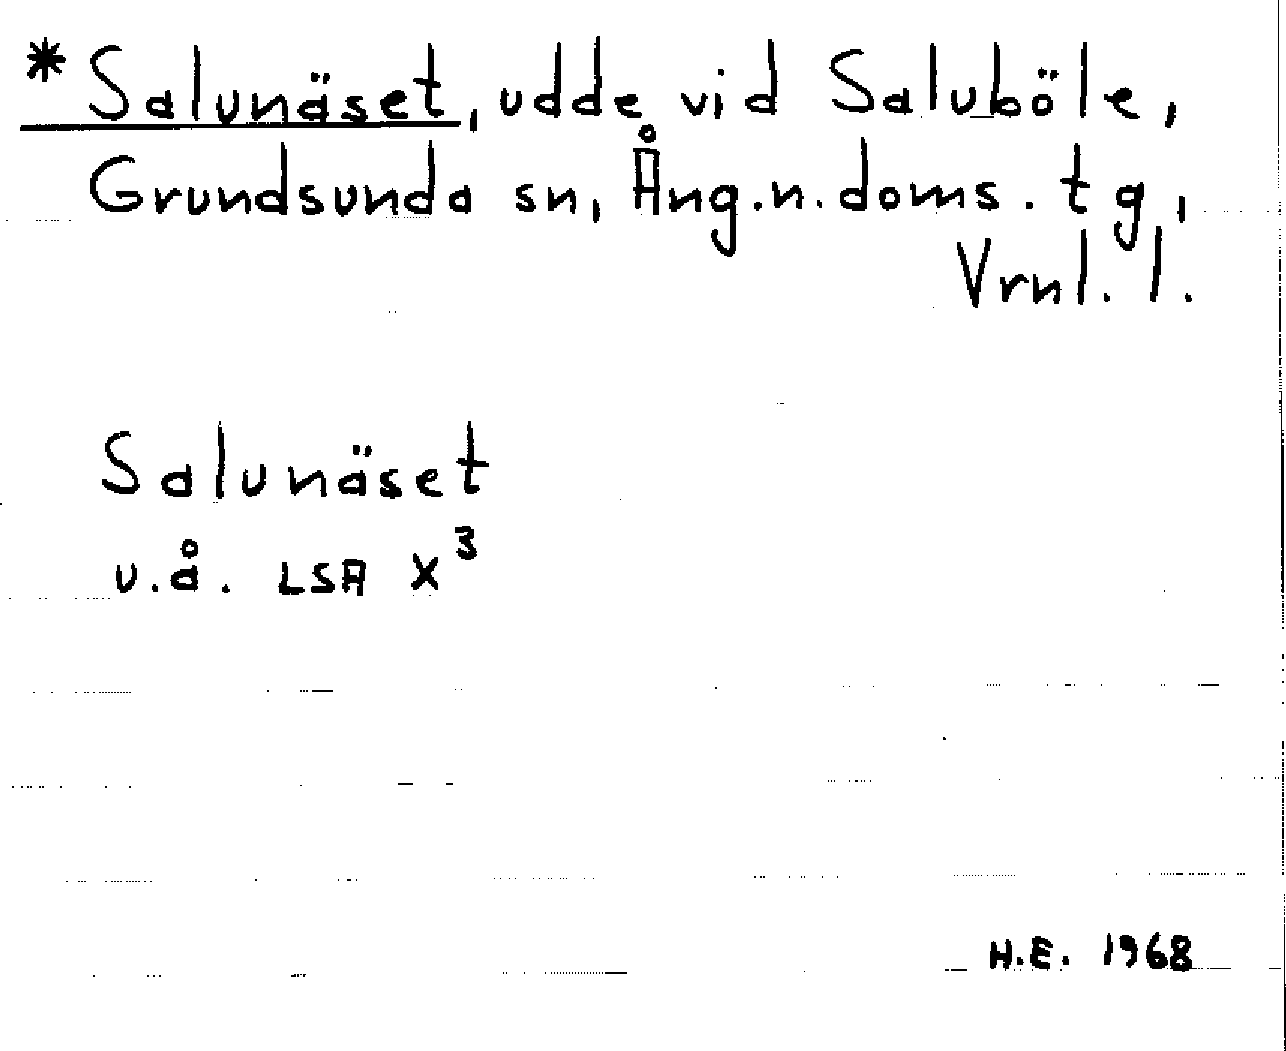 * Salunäset, udde vid Saluböle,
Grundsunda sn, Ång.n.doms.tg,
Vrnl.l.
Salunäset
u.å. LSA X³
H.E. 1968